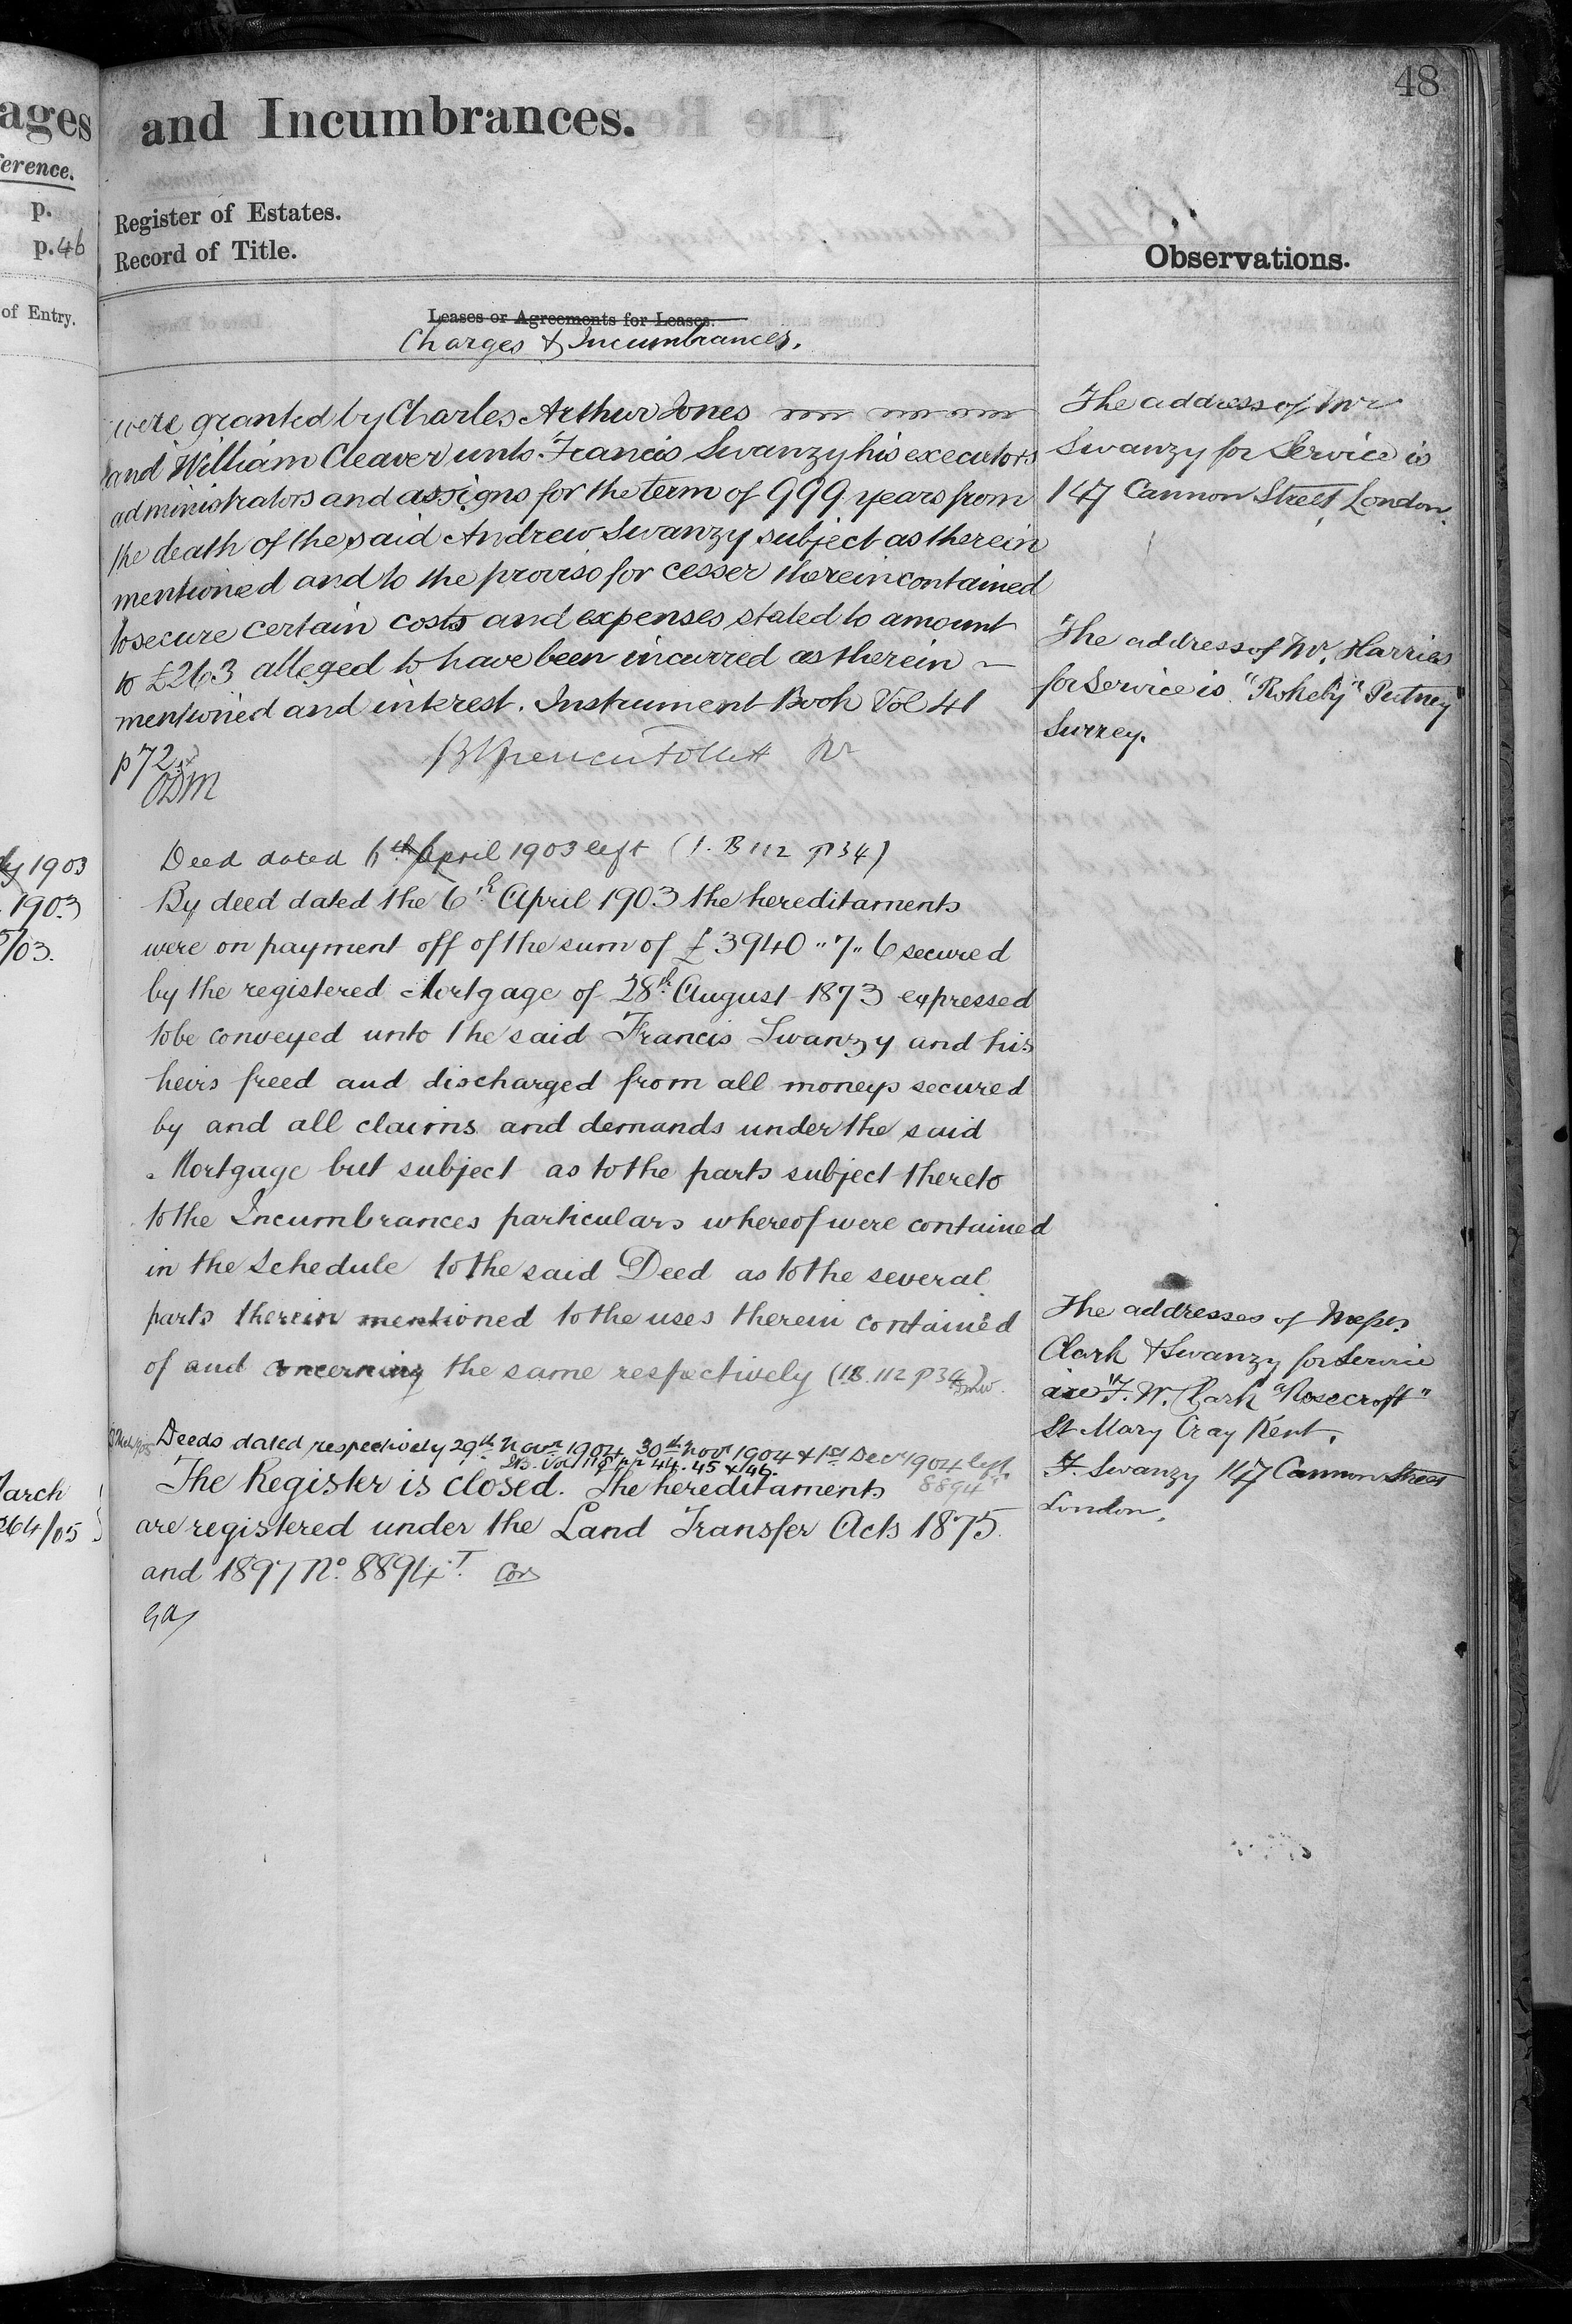 ages
erence.
p.
p. 46
of Entry.
1903
1903
/03.
arch
264/05
48
and Incumbrances.
Register of Estates.
Record of Title.
Leases or Agreements for Leases.
Charges & Incumbrances.
were granted by Charles Arthur Jones
and William Cleaver unto Francis Swanzy his executors
administrators and assigns for the term of 999 years from
the death of the said Andrew Swanzy subject as therein
mentioned and to the proviso for cesser therein contained
to secure certain costs and expenses stated to amount
to £263 alleged to have been incurred as therein
mentioned and interest. Instrument Book Vol 41
p 72
Deed dated 6th April 1903 left (I. B 112 p 34)
By deed dated the 6th April 1903 the hereditaments
were on payment off of the sum of £3940 " 7 " 6 secured
by the registered Mortgage of 28th August 1873 expressed
to be conveyed unto the said Francis Swanzy and his
heirs freed and discharged from all moneys secured
by and all claims and demands under the said
Mortgage but subject as to the parts subject thereto
to the Incumbrances particulars whereof were contained
in the Schedule to the said Deed as to the several
parts therein mentioned to the uses therein contained
of and concerning the same respectively (I.B. 112 p 34)
Deeds dated respectively 29th Novr 1904, 30th Novr 1904 & 1st Decr 1904 left
I.B. Vol 118 pp 44. 45 & 46.
The Register is closed. The hereditaments 8894
are registered under the Land Transfer Acts 1875
and 1897 No. 8894 T.
Observations.
The address of Mr
Swanzy for Service is
147 Cannon Street, London.
The address of Mr. Harries
for Service is "Rokeby" Putney
Surrey.
The addresses of Messrs.
Clark & Swanzy for Service
are F. W. Clark "Rosecroft"
St Mary Cray Kent.
F. Swanzy 147 Cannon Street
London.